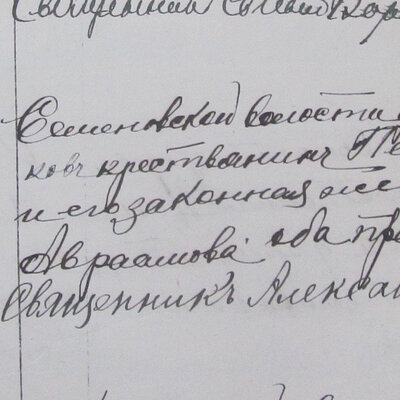 Священник
Семеновской волости
ковъ крестьянинъ
и его законная же
Авраамова оба пр
Священникъ Алекса